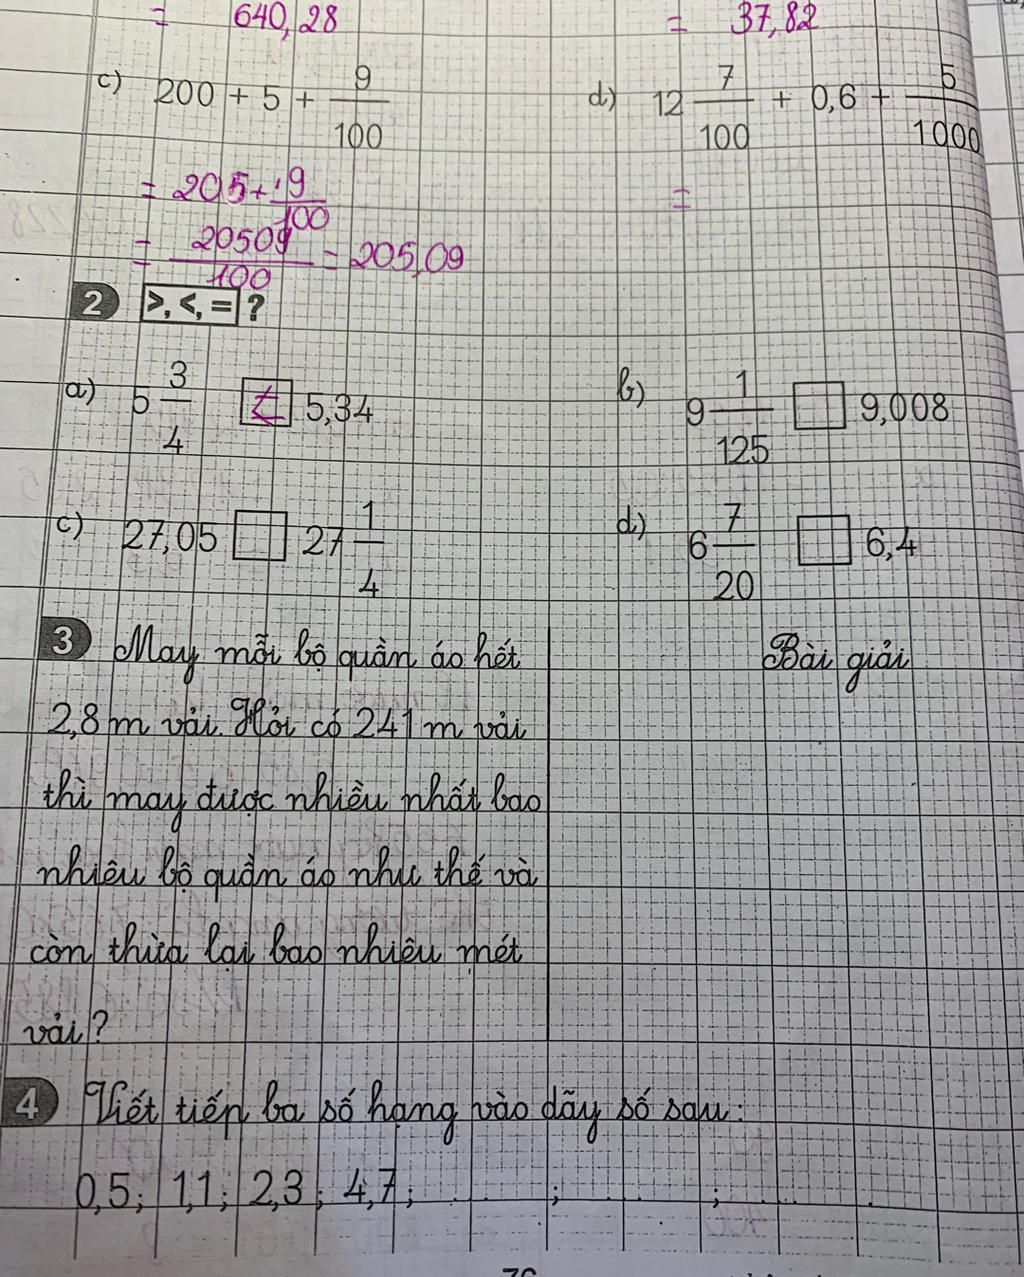 = 640,28 = 37,82
c) 200 + 5 + 9/100 d) 12 7/100 + 0,6 + 5/1000
= 205 + 9/100 =
= 20509/100 = 205,09
2 >, <, = ?
a) 5 3/4 5,34 b) 9 1/125 □ 9,008
c) 27,05 □ 27 1/4 d) 6 7/20 □ 6,4
3 May mỗi bộ quần áo hết Bài giải
2,8 m vải. Hỏi có 241 m vải
thì may được nhiều nhất bao
nhiêu bộ quần áo như thế và
còn thừa lại bao nhiêu mét
vải?
4 Viết tiếp ba số hạng vào dãy số sau:
0,5; 1,1; 2,3; 4,7; ; ;